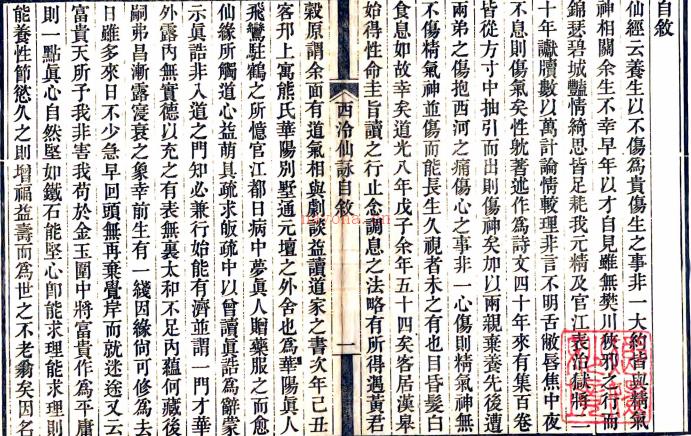 自敘
仙經云養生以不傷為貴傷生之事非一大約皆與精氣
神相關余生不幸早年以才自見雖無樊川狹邪之行而
錦瑟碧城豔情綺思皆足耗我元精及官江表治獄將
十年讞牘數以萬計論情較理非言不明舌敝唇焦中夜
不息則傷氣矣性躭著述作為詩文四十年來有集百卷
皆從方寸中抽引而出則傷神矣加以兩親棄養先後遭
兩弟之傷抱西河之痛傷心之事非一心傷則精氣神無
不傷精氣神並傷而能長生久視者未之有也目昏髮白
食息如故幸矣道光八年戊子余年五十四矣客居漢臯
始得性命圭旨讀之行止念調息之法略有所得遇黃君
西泠仙詠自敘
一
穀原謂余面有道氣相與劇談益讀道家之書次年己丑
客邗上寓熊氏華陽別墅通元壇之外舍也為華陽眞人
飛鸞駐鶴之所憶官江都日病中夢眞人贈藥服之而愈
仙緣所觸道心益萌具疏求皈疏中以曾讀眞誥為辭蒙
示眞誥非入道之門知必兼行始能有濟並謂一門才華
外露內無實德以充之有表無裏太和不足內蘊何藏後
嗣弗昌漸露漫衰之象幸前生有一綫因緣尙可修為去
日雖多來日不少急早回頭無再棄覺岸而就迷途又云
富貴天所予我非害我苟於金玉圍中將富貴作為平庸
則一點眞心自然堅如鐵石能堅心卽能求理能求理則
能養性節慾久之則增福益壽而為世之不老翁矣因名